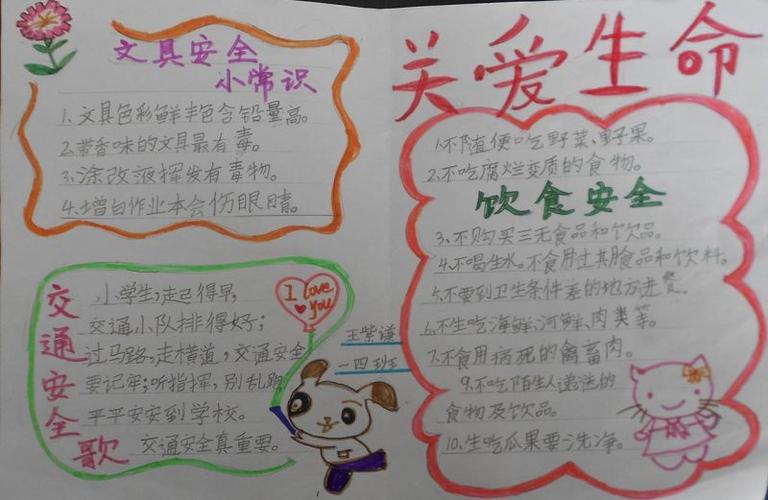 关爱生命
文具安全
小常识
1.文具色彩鲜丰色含铅量高。
2.带香味的文具最有毒。
3.涂改液挥发有毒物。
4.增白作业本会伤眼睛。
交通安全歌
小学生,走起得早,
交通小队排得好;
过马路,走横道,交通安全
要记牢;听指挥,别乱跑
平平安安到学校。
交通安全真重要。
I love
you
王紫谦
一四班
1.不随便吃野菜、野果。
2.不吃腐烂变质的食物。
饮食安全
3.不购买三无食品和饮品。
4.不喝生水。不食用过期食品和饮料。
5.不要到卫生条件差的地方进餐。
6.不生吃海鲜、河鲜、肉类等。
7.不食用病死的禽畜肉。
9.不吃陌生人递送的
食物及饮品。
10.生吃瓜果要洗净。